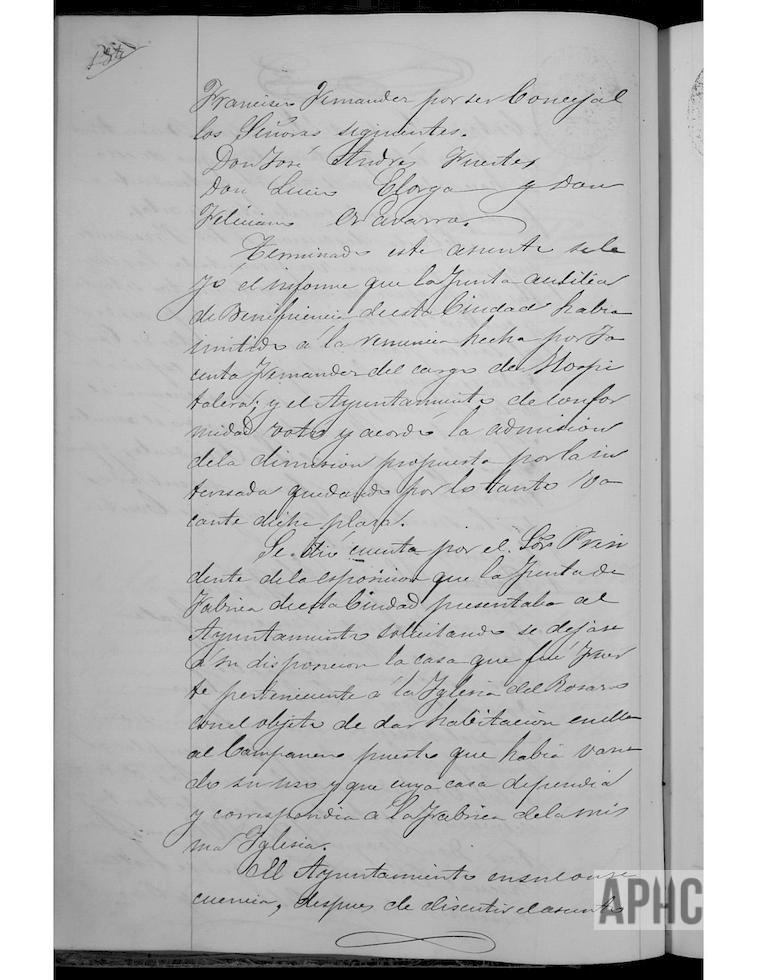 Francisco Fernandez por ser Concejal
los Señores siguientes.
Don José Andrés Fuertes
Don Luis Elorga y Don
Feliciano Navarro.
Terminado este asunto se le
yó el informe que la Junta ausiliar
de Benificiencia de esta Ciudad habia
emitido á la renuncia hecha por Ja
cinta Fernandez del cargo de Hospi
talera; y el Ayuntamiento de confor
midad votó y acordó la admision
de la dimision propuesta por la in
teresada quedando por lo tanto va
cante dicha plaza.
Se dió cuenta por el Sõr Presi
dente de la esposicion que la Junta de
Fabrica de esta Ciudad presentaba al
Ayuntamiento solicitando se dejase
á su disposicion la casa que fué Fuer
te perteneciente á la Iglesia del Rosario
con el objeto de dar habitacion en ella
al Campanero puesto que habia varia
do su uso y que cuya casa dependia
y correspondia á la Fabrica de la mis
ma Iglesia.
El Ayuntamiento en su conse
cuencia, despues de discutir el asunto
APHC